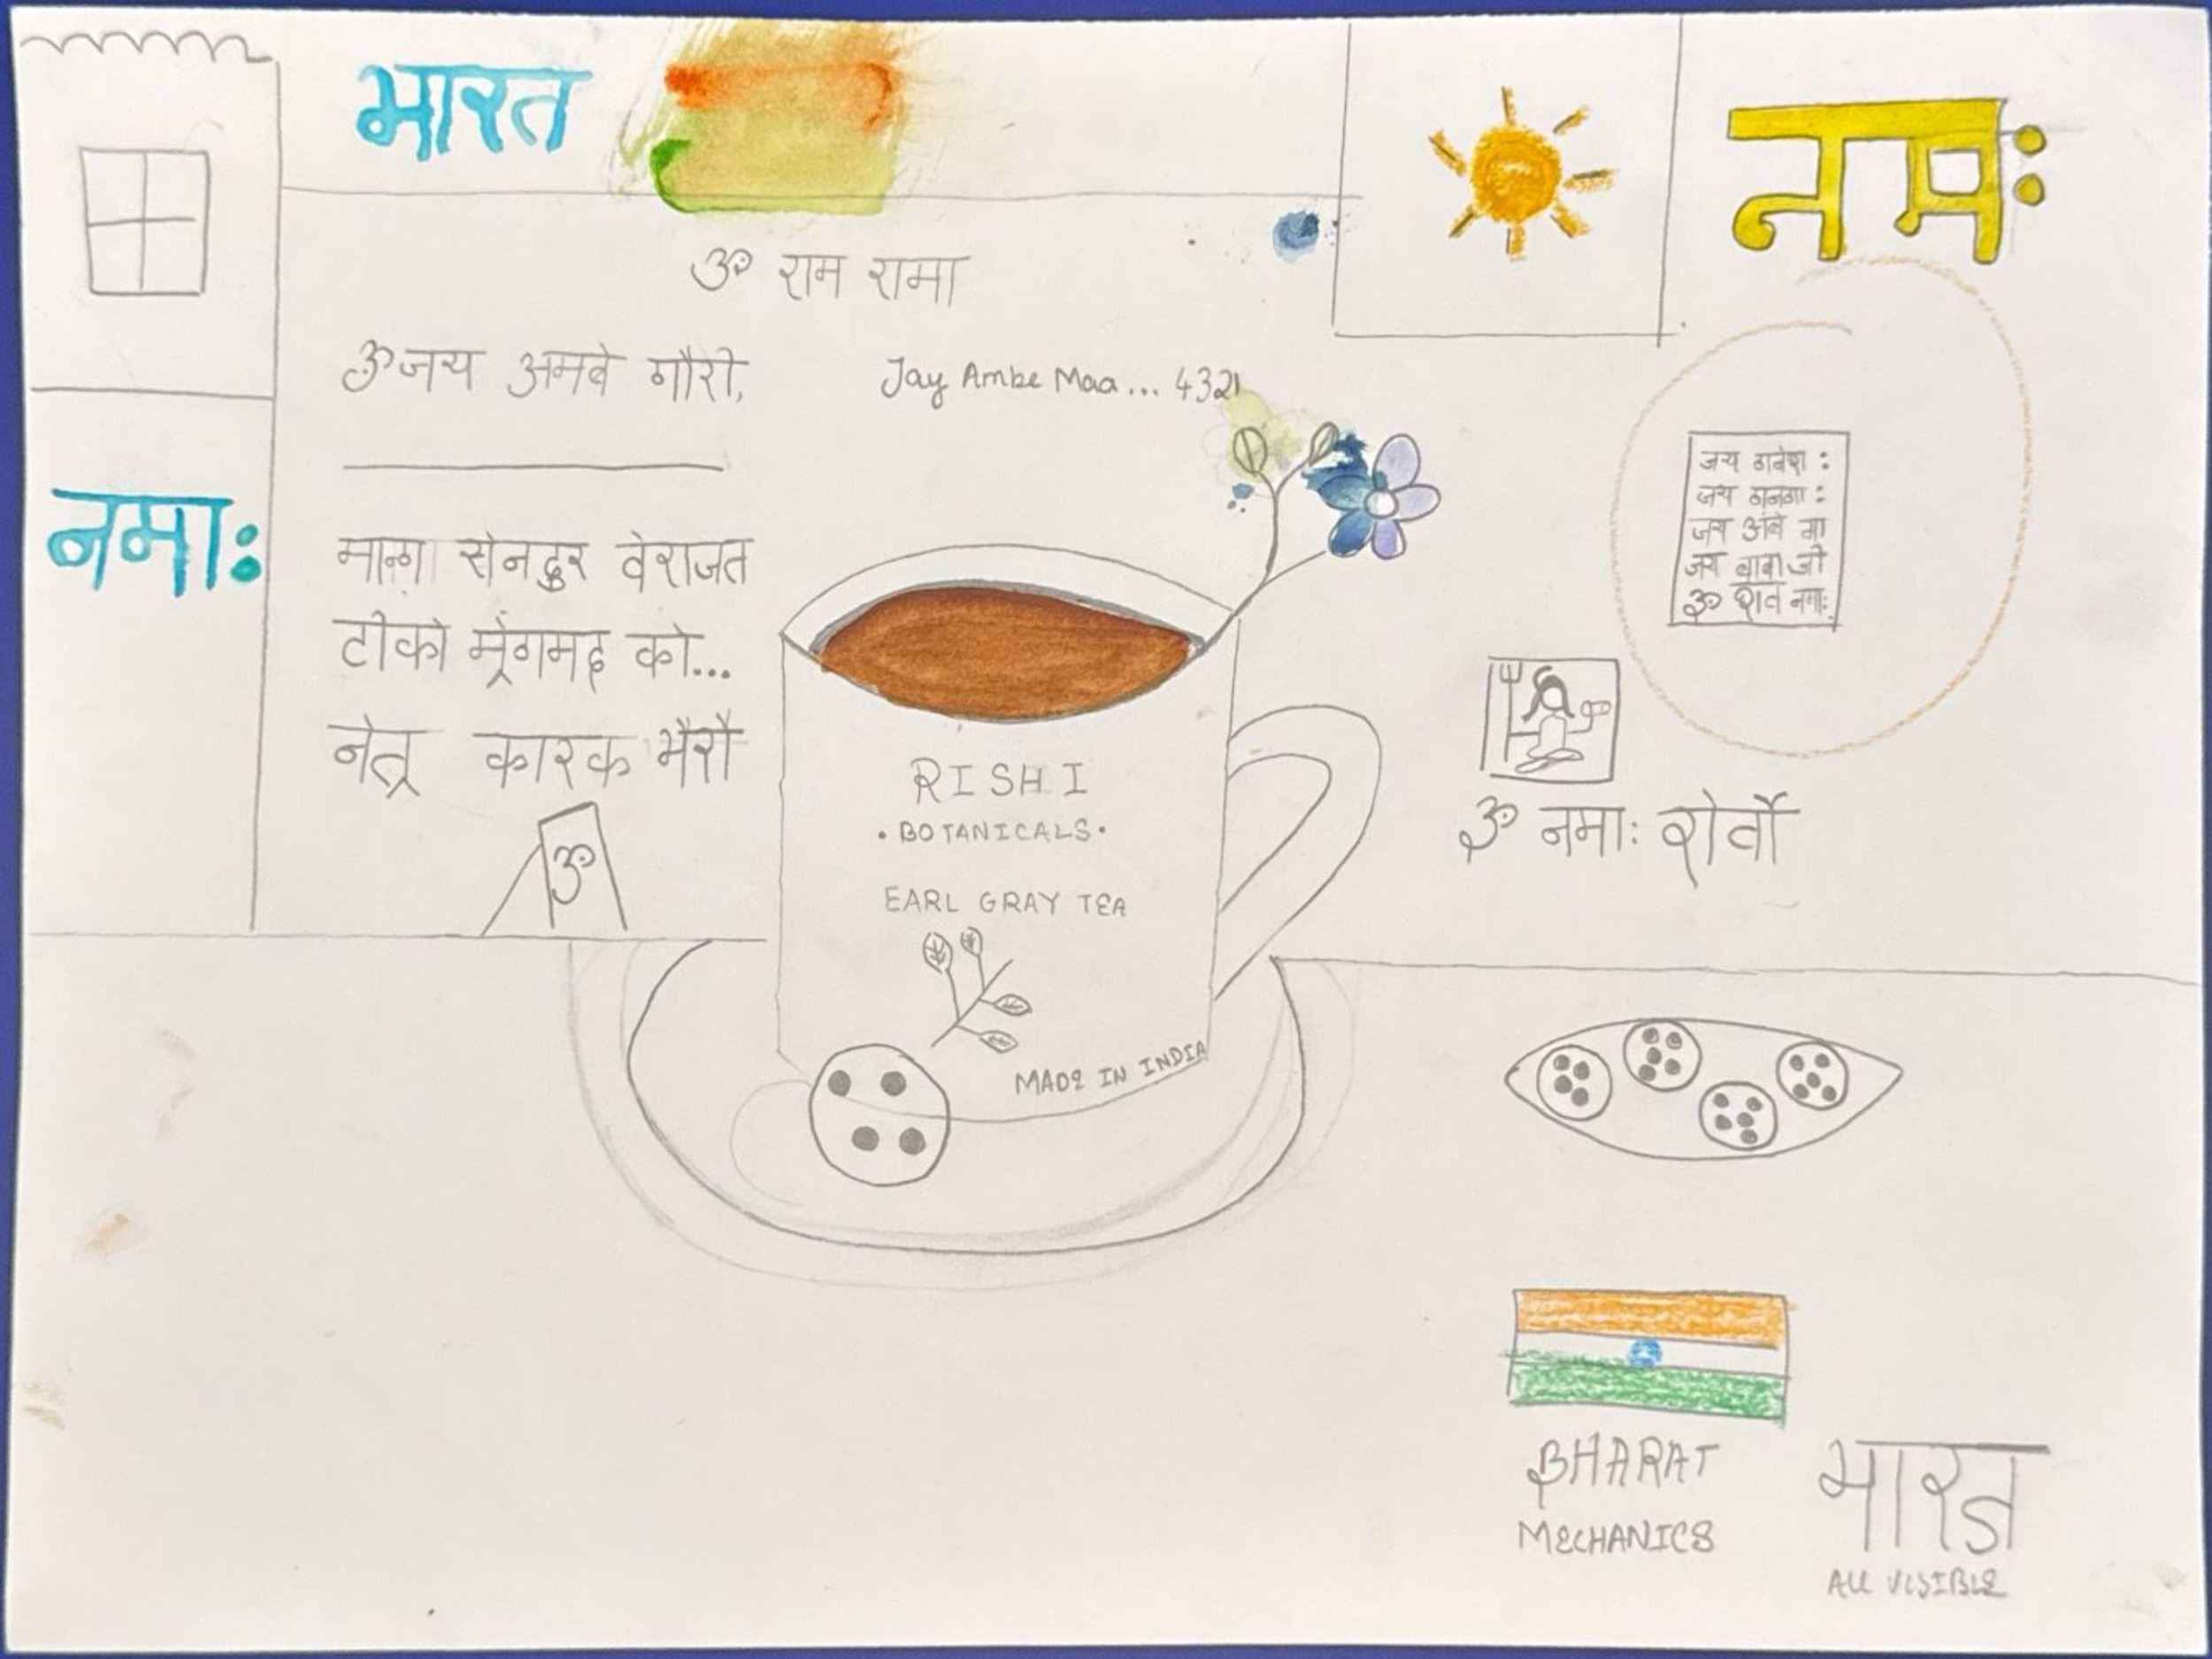 भारत
नमः
ॐ राम रामा
ॐ जय अमबे गौरी,
Jay Ambe Maa... 4321
नमाः
माग सेनदुर वेराजत
टीको म्रेगमद को...
नेत्र कारक भैरौ
ॐ
जय
जय
जय अंबे मा
जय बाबा जी
ॐ शिव नमः
ॐ नमाः
RISHI
• BOTANICALS •
EARL GRAY TEA
MADE IN INDIA
BHARAT
MECHANICS
भारत
ALL VISIBLE